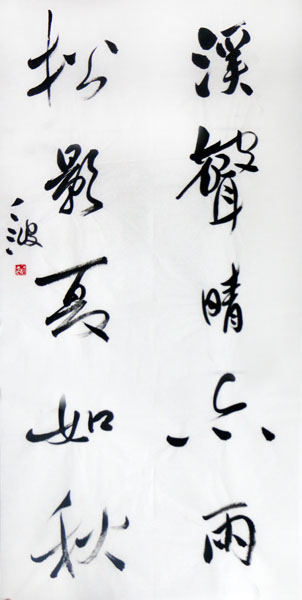 溪聲晴亦雨
松影夏如秋
波